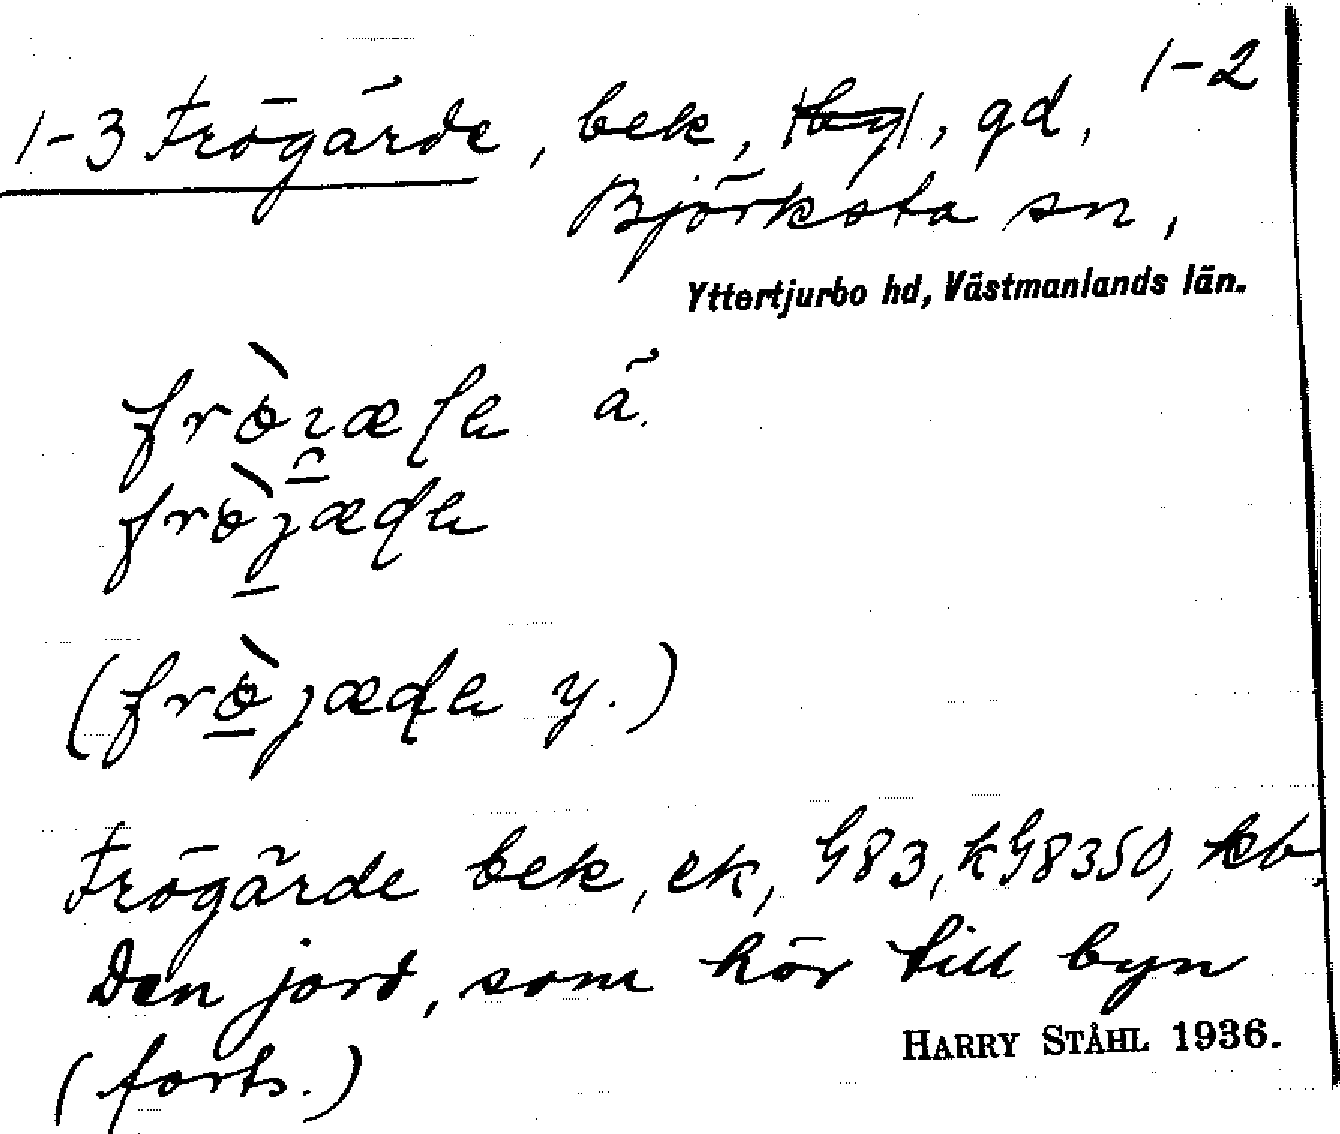 1-2
1-3 Frögärde, bek, by, gd,
Björksta sn,
Yttertjurbo hd, Västmanlands län.
ä.
(frö̀jæɖa y.)
Frögärde bek, ek, G83, kG8350, kb.
Den jord, som hör till byn
(forts.)
HARRY STÅHL 1936.